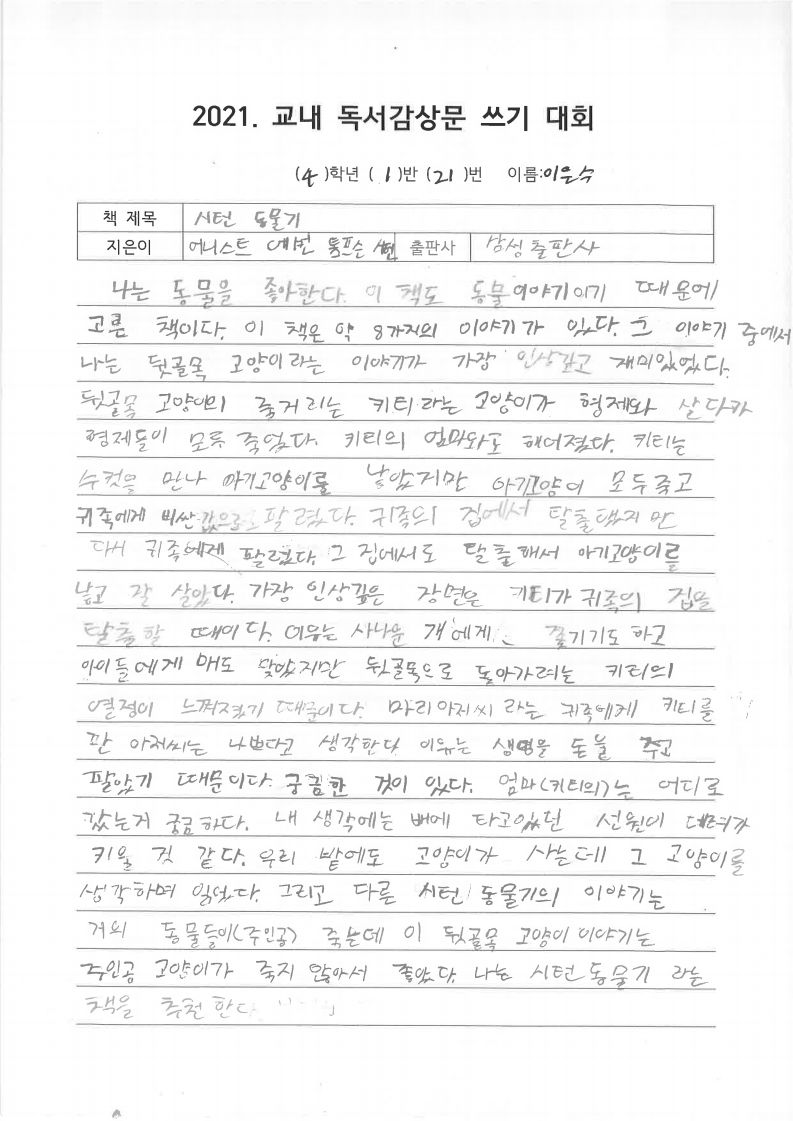 2021. 교내 독서감상문 쓰기 대회
(4)학년 (1)반 (21)번 이름:이은수
책 제목 시턴 동물기
지은이 어니스트 톰프슨 출판사 삼성출판사
나는 동물을 좋아한다. 이 책도 동물이야기이기 때문에
고른 책이다. 이 책은 약 8가지의 이야기가 있다. 그 이야기 중에서
나는 뒷골목 고양이라는 이야기가 가장 인상깊고 재미있었다.
뒷골목 고양이의 줄거리는 키티라는 고양이가 형제와 살다가
형제들이 모두 죽었다. 키티의 엄마와도 헤어졌다. 키티는
수컷을 만나 아기고양이를 낳았지만 아기고양이 모두죽고
귀족에게 비싼값으로 팔렸다. 귀족의 집에서 탈출했지만
다시 귀족에게 팔렸다. 그 집에서도 탈출해서 아기고양이를
낳고 잘 살았다. 가장 인상깊은 장면은 키티가 귀족의 집을
탈출할 때이다. 이유는 사나운 개에게 쫓기기도 하고
아이들에게 매도 맞았지만 뒷골목으로 돌아가려는 키티의
열정이 느껴졌기 때문이다. 마리아저씨라는 귀족에게 키티를
판 아저씨는 나쁘다고 생각한다. 이유는 생명을 돈을 주고
팔았기 때문이다. 궁금한 것이 있다. 엄마(키티의)는 어디로
갔는지 궁금하다. 내 생각에는 배에 타고있던 선원이
키울 것 같다. 우리 밭에도 고양이가 사는데 그 고양이를
생각하며 읽었다. 그리고 다른 시턴 동물기의 이야기는
거의 동물들이(주인공) 죽는데 이 뒷골목 고양이 이야기는
주인공 고양이가 죽지 않아서 좋았다. 나는 시턴 동물기 라는
책을 추천한다.